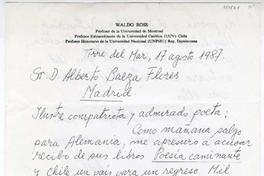 WALDO ROSS
Profesor de la Universidad de Montreal
Profesor Extraordinario de la Universidad Católica (UCV) Chile
Profesor Honorario de la Universidad Nacional (UNPHU) Rep. Dominicana
Torre del Mar, 17 agosto 1987.
Sr D. Alberto Baeza Flores
Madrid
Ilustre compatriota y admirado poeta:
Como mañana salgo
para Alemania, me apresuro a acusar
recibo de sus libros Poesía caminante
y Chile un país para un regreso. Mil